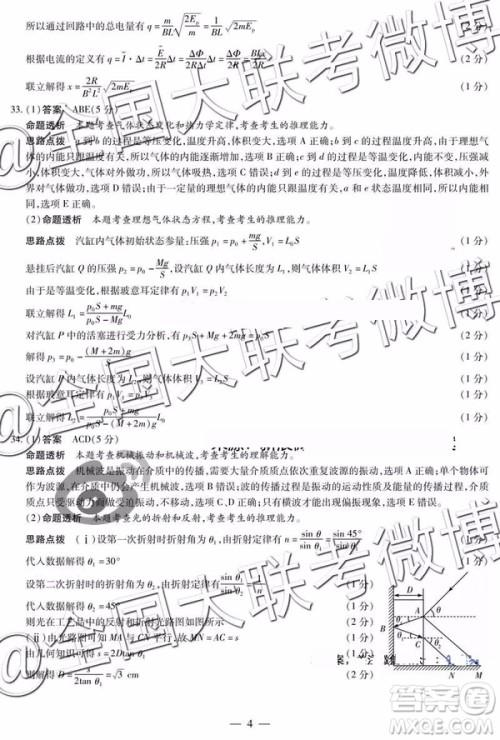 所以通过回路中的总电量有 q = m/BL √(2E_p/m) = 1/BL √(2mE_p) (2分)
根据电流的定义有 q = I̅·Δt = E̅/2R Δt = ΔΦ/2RΔt Δt = ΔΦ/2R = BLx/2R (2分)
联立解得 x = 2R/B²L² √(2mE_p) (2分)
33. (1)答案 ABE(5分)
命题透析 本题考查气体状态变化和热力学定律,考查考生的推理能力。
思路点拨 a到b的过程是等压变化,温度升高,体积变大,选项A正确;b到c的过程是等容变化,温度升高,由于理想气
体的内能只跟温度有关,所以气体的内能逐渐增加,选项B正确;c到d的过程是等压变化,温度降低,内能减小,体积
减小,外界对气体做功,气体向外放出热量,选项C错误;d到a的过程是等容变化,温度降低,内能减小,体积不变,外
界对气体做功为0,选项D错误;由于一定量的理想气体的内能只跟温度有关,a和c状态温度相同,所以内能相
同,选项E正确。
(2)命题透析 本题考查理想气体状态方程,考查考生的推理能力。
思路点拨 汽缸内气体初始状态参量:压强 p₁ = p₀ + mg/S,V₁ = L₀S (1分)
悬挂后汽缸Q的压强 p₂ = p₀ − Mg/S,设汽缸Q内气体长度为L₁,则气体体积 V₂ = L₁S (1分)
由于是等温变化,根据玻意耳定律有 p₁V₁ = p₂V₂ (1分)
联立解得 L₁ = (p₀S + mg)/(p₀S − Mg) L₀ (1分)
对汽缸P中的活塞进行受力分析,有 p₃S + Mg + 2mg = p₀S (2分)
解得 p₃ = p₀ − (M + 2m)g/S (1分)
设汽缸P内气体长度为L₂,则气体体积
根据玻意耳定律有 p₁V₁ = p₃V₃
联立解得 L₂
34. (1)答案 ACD(5分)
命题透析 本题考查机械振动和机械波,考查考生的理解能力。
思路点拨 机械波是振动在介质中的传播,需要大量介质质点依次重复波源的振动,选项A正确;单个物体可
作为波源,波在介质中传播,介质质点只在各自的平衡位置附近振动,选项B错误;机械波的产生过程是介质质点
受到驱动力而做受迫振动,选项D正确;只有横波才能形成凸凹相间的波形,选项E错误。
(2)命题透析 本题考查光的折射和反射,考查考生的推理能力。
思路点拨 (ⅰ)设第一次折射时折射角为θ₁,由折射定律有 n = sinθ/sinθ₁ = sin45°/sinθ₁ (1分)
代入数据解得 θ₁ = 30° (1分)
设第二次折射时的折射角为θ₂,由折射定律有 sinθ₁/sinθ₂ = 1/n (1分)
代入数据解得 θ₂ = 45° (1分)
则光在工艺品中的反射和折射光路图如图所示 (2分)
(ⅱ)由光路图可知MA与CN平行,故MN = AC = s (1分)
由几何关系可得 s = 2Dtanθ₁ (1分)
解得 D = s/(2tanθ₁) = √3 cm (2分)
D
A
θ
θ₁
B
C
θ₂
N
M
— 4 —
@全国大联考微博
答案圈
MXQE.COM